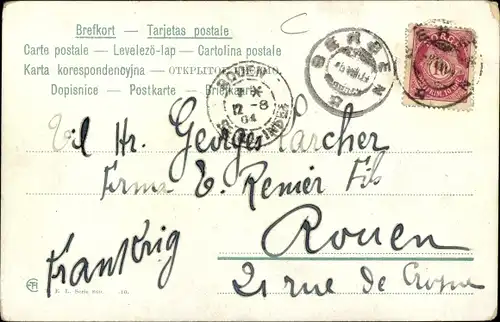 Brefkort — Tarjetas postale
Carte postale — Levelező-lap — Cartolina postale
Karta korespondencyjna — ОТКРЫТО
Dopisnice — Postkarte — Briefkaart
ROUEN
12-8
04
BERGEN
NORGE
10
Til Hr. Georges Larcher
Firma E. Renier Fils
Rouen
Frankrig
21 rue de Crosne
Serie